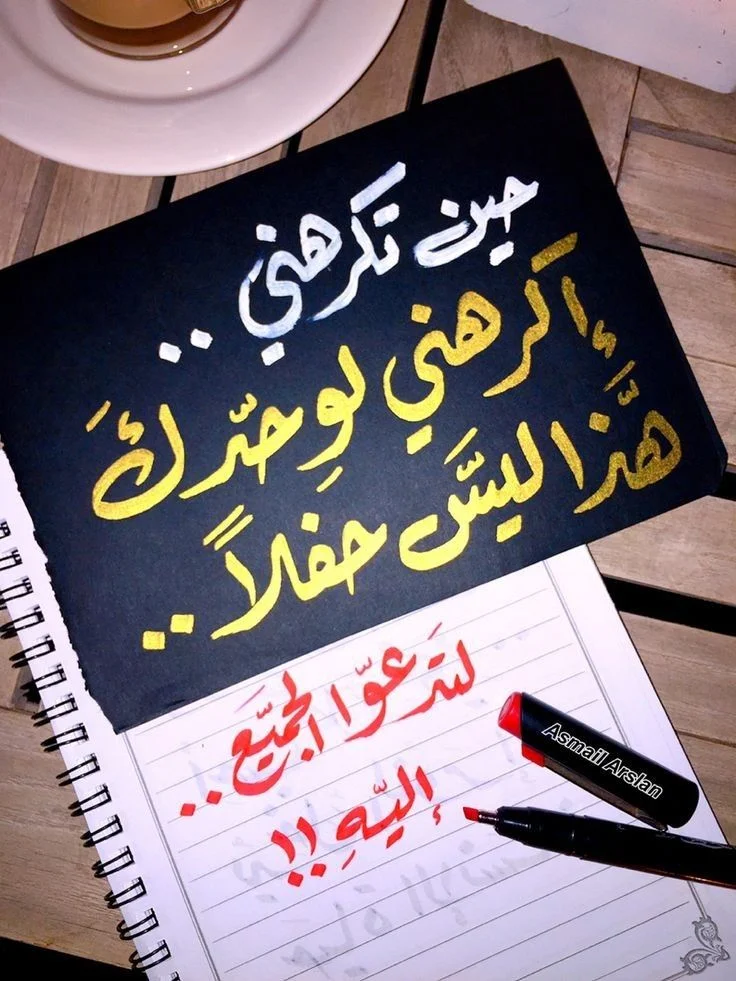 حين تكرهني ..
إكرهني لوِحدّكَ
هذَّا ليسَّ حفلاً ..
لتدعوَّا الجميّعَ ..
إليّهِ !!
Asmail Arslan